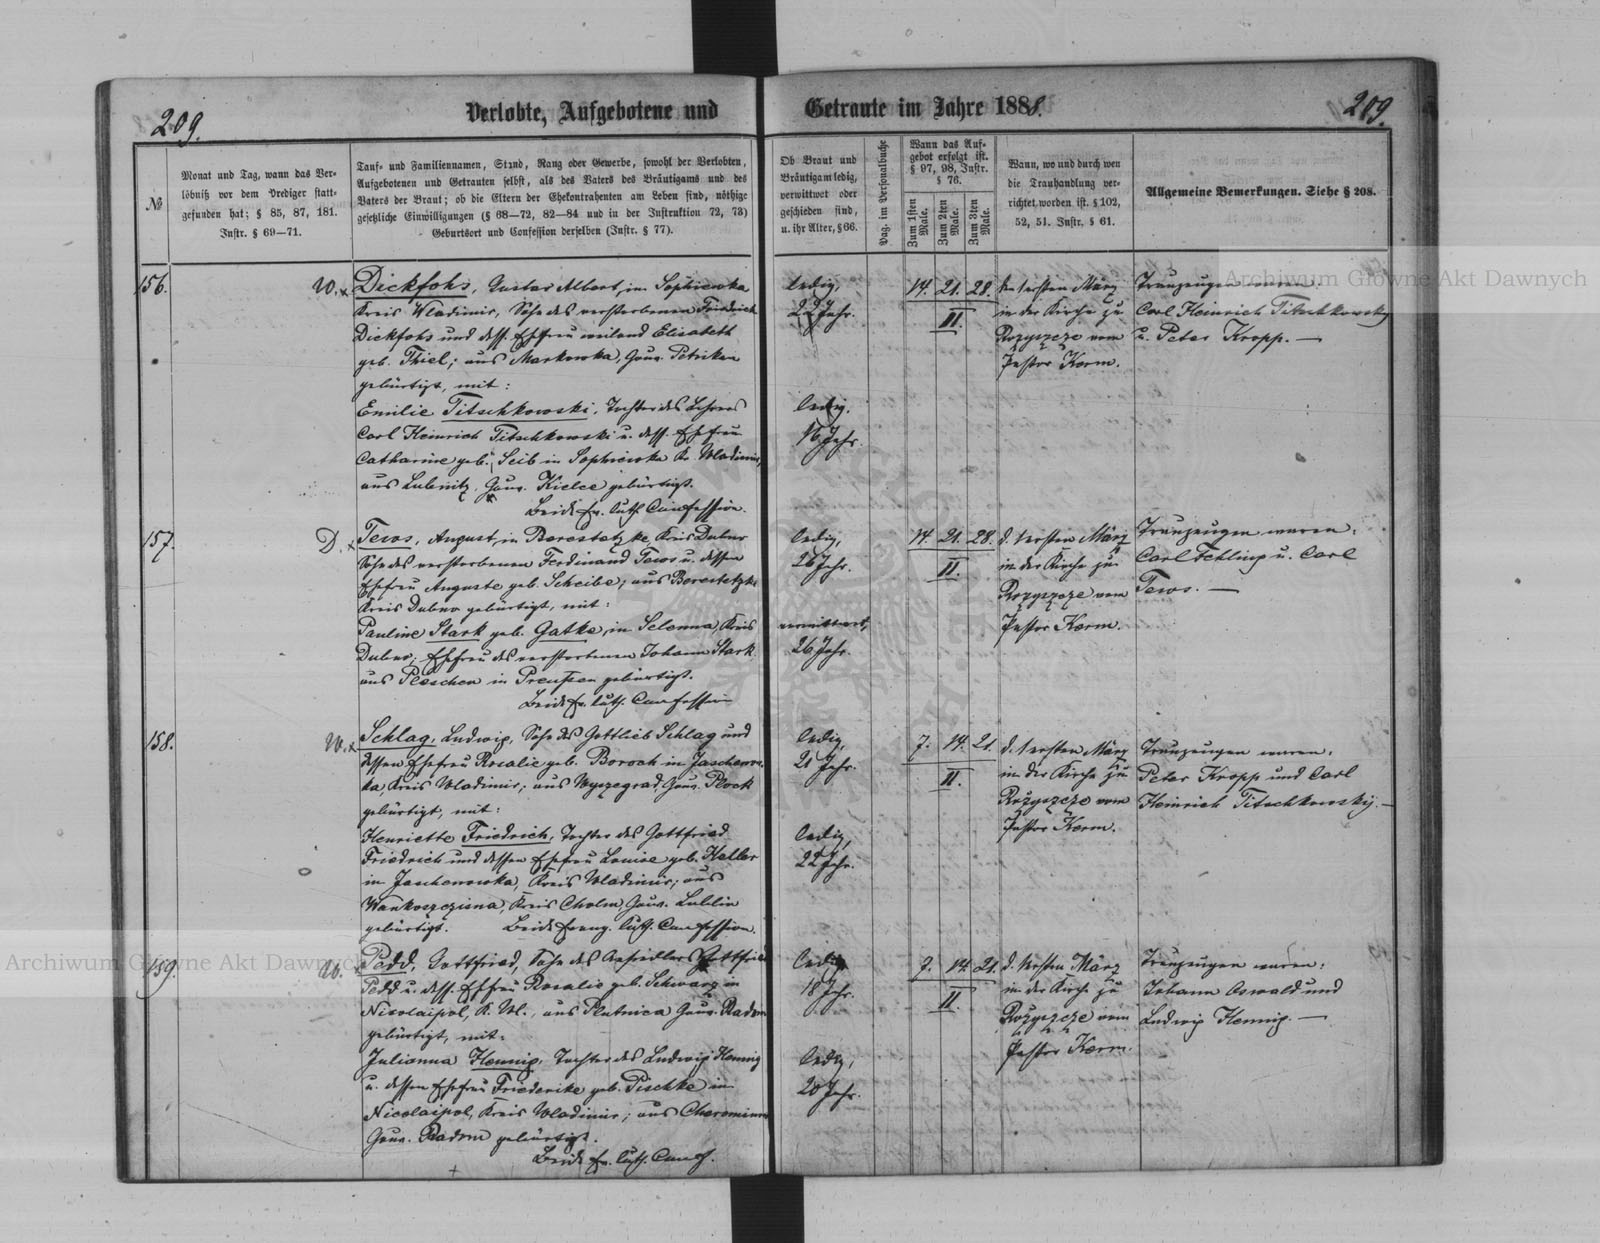 209.
Verlobte, Aufgebotene und
Getraute im Jahre 1881.
209.
№
Monat und Tag, wann das Ver-
löbniß vor dem Prediger statt-
gefunden hat; § 85, 87, 181.
Instr. § 69—71.
Tauf- und Familiennamen, Stand, Rang oder Gewerbe, sowohl der Verlobten,
Aufgebotenen und Getrauten selbst, als des Vaters des Bräutigams und des
Vaters der Braut; ob die Eltern der Ehekontrahenten am Leben sind, nöthige
gesetzliche Einwilligungen (§ 68—72, 82—84 und in der Instruktion 72, 73)
Geburtsort und Confession derselben (Instr. § 77).
Ob Braut und
Bräutigam ledig,
verwittwet oder
geschieden sind,
u. ihr Alter, § 66.
Pag. im Personalbuche
Wann das Auf-
gebot erfolgt ist.
§ 97, 98, Instr.
§ 76.
Zum 1sten
Male.
Zum 2ten
Male.
Zum 3ten
Male.
Wann, wo und durch wen
die Trauhandlung ver-
richtet worden ist. § 102,
52, 51. Instr. § 61.
Allgemeine Bemerkungen. Siehe § 208.
156.
W. x
Dickfohs, Gustav Albert, in Sophiewka
Kreis Wladimir, Sohn des verstorbenen Friedrich
Dickfohs und dess. Ehefrau weiland Elisabeth
geb. Thiel; aus Markowka, Gouv. Petrikau
gebürtigt, mit:
Emilie Titschkowski, Tochter des Lehrers
Carl Heinrich Titschkowski u. dess. Ehefrau
Catharine geb. Seib in Sophiewka Kr. Wladimir,
aus Lubnitz, Gouv. Kielce gebürtigt.
Beide Ev. luth. Confession.
ledig,
22 Jahr.
ledig.
16 Jahr.
14. 21. 28.
II.
den ersten März
in der Kirche zu
Rozyszcze vom
Pastor Kerm.
Trauzeugen waren:
Carl Heinrich Titschkowsky
u. Peter Kropp. —
157.
D. x
Tews, August, in Berestetzke, Kreis Dubno
Sohn des verstorbenen Ferdinand Tews u. dessen
Ehefrau Auguste geb. Scheibe; aus Berestetzke
Kreis Dubno gebürtigt, mit:
Pauline Stark geb. Gatke, in Selenna, Kreis
Dubno, Ehefrau des verstorbenen Johann Stark
aus Pleschen in Preußen gebürtigt.
Beide Ev. luth. Confession
ledig,
26 Jahr.
verwittwet,
26 Jahr.
14. 21. 28.
II.
d. 1 ersten März
in der Kirche zu
Rozyszcze vom
Pastor Kerm.
Trauzeugen waren:
Carl Fehling u. Carl
Tews. —
158.
W. x
Schlag, Ludwig, Sohn des Gottlieb Schlag und
dessen Ehefrau Rosalie geb. Boroch in Jaschenow-
ka, Kreis Wladimir; aus Wyszegrad, Gouv. Plock
gebürtigt, mit:
Henriette Friedrich, Tochter des Gottfried
Friedrich und dessen Ehefrau Louise geb. Keller
in Jaschenowka, Kreis Wladimir; aus
Kreis Cholm, Gouv. Lublin
gebürtigt. Beide Evang. luth. Confession.
ledig,
21 Jahr.
ledig,
22 Jahr.
7. 14. 21.
II.
d. 1 ersten März
in der Kirche zu
Rożyszcze vom
Pastor Kerm.
Trauzeugen waren:
Peter Kropp und Carl
Heinrich Titschkowskij. —
159.
W.
Pedd, Gottfried, Sohn des Ansiedlers Gottfried
Pedd u. dess. Ehefrau Rosalie geb. Schwarz in
Nicolaipol, K. Wl., aus Plutnica Gouv. Radom
gebürtigt, mit:
Julianna Hennig, Tochter des Ludwig Hennig
u. dessen Ehefrau Friederike geb. Pischke in
Nicolaipol, Kreis Wladimir; aus
Gouv. Radom gebürtigt.
Beide Ev. luth. Conf.
ledig
18 Jahr.
ledig,
20 Jahr.
7. 14. 21.
II.
d. ersten März
in der Kirche zu
Rożyszcze vom
Pastor Kerm.
Trauzeugen waren:
Johann Oswald und
Ludwig Hennig. —
Archiwum Główne Akt Dawnych
Archiwum Główne Akt Dawnych